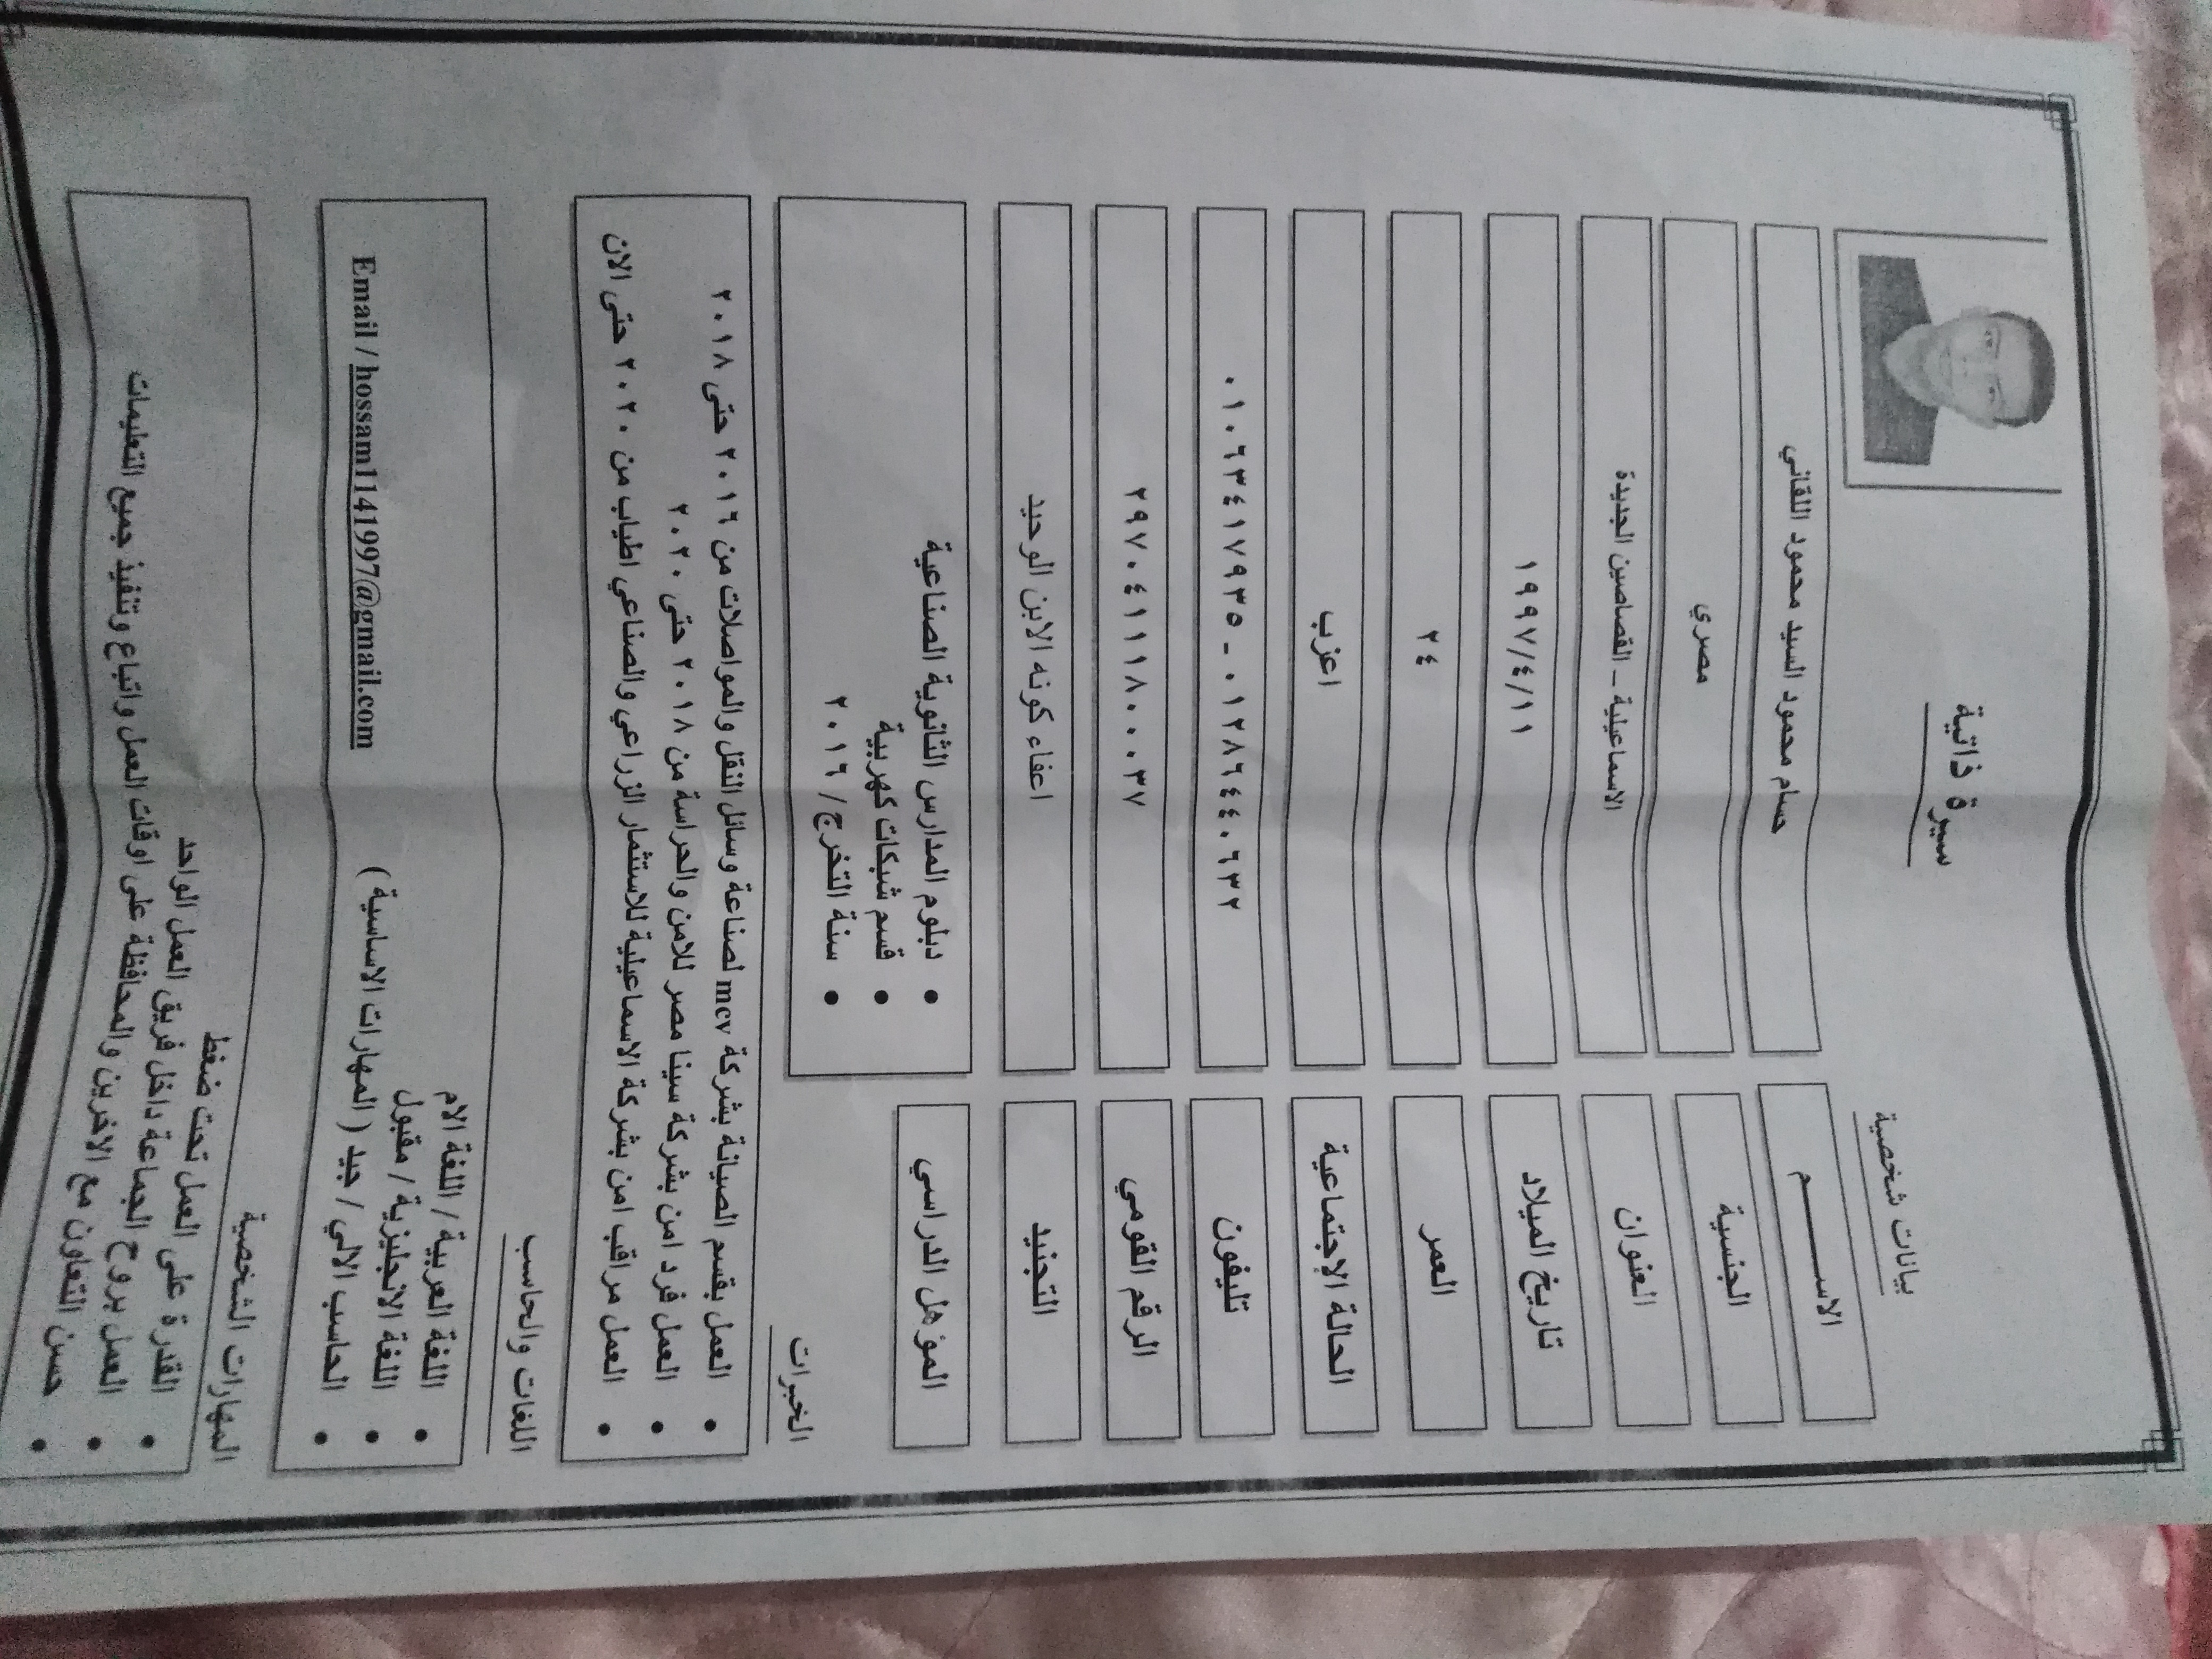 سيرة ذاتية
بيانات شخصية
الاســـــــم
حسام محمود السيد محمود اللقاني
الجنسية
مصري
العنوان
الاسماعيلية – القصاصين الجديدة
تاريخ الميلاد
١٩٩٧/٤/١١
العمر
٢٤
الحالة الإجتماعية
اعزب
تليفون
٠١٠٦٣٤١٧٩٣٥ - ٠١٢٨٦٤٤٠٦٣٢
الرقم القومي
٢٩٧٠٤١١١٨٠٠٠٣٧
التجنيد
اعفاء كونه الابن الوحيد
المؤهل الدراسي
• دبلوم المدارس الثانوية الصناعية
• قسم شبكات كهربية
• سنة التخرج / ٢٠١٦
الخبرات
• العمل بقسم الصيانة بشركة mcv لصناعة وسائل النقل والمواصلات من ٢٠١٦ حتى ٢٠١٨
• العمل فرد امن بشركة سينا مصر للامن والحراسة من ٢٠١٨ حتى ٢٠٢٠
• العمل مراقب امن بشركة الاسماعيلية للاستثمار الزراعي والصناعي اطياب من ٢٠٢٠ حتى الان
اللغات والحاسب
• اللغة العربية / اللغة الام
• اللغة الانجليزية / مقبول
• الحاسب الالي / جيد ( المهارات الاساسية )
Email / hossam1141997@gmail.com
المهارات الشخصية
• القدرة على العمل تحت ضغط
• العمل بروح الجماعة داخل فريق العمل الواحد
• حسن التعاون مع الاخرين والمحافظة على اوقات العمل واتباع وتنفيذ جميع التعليمات